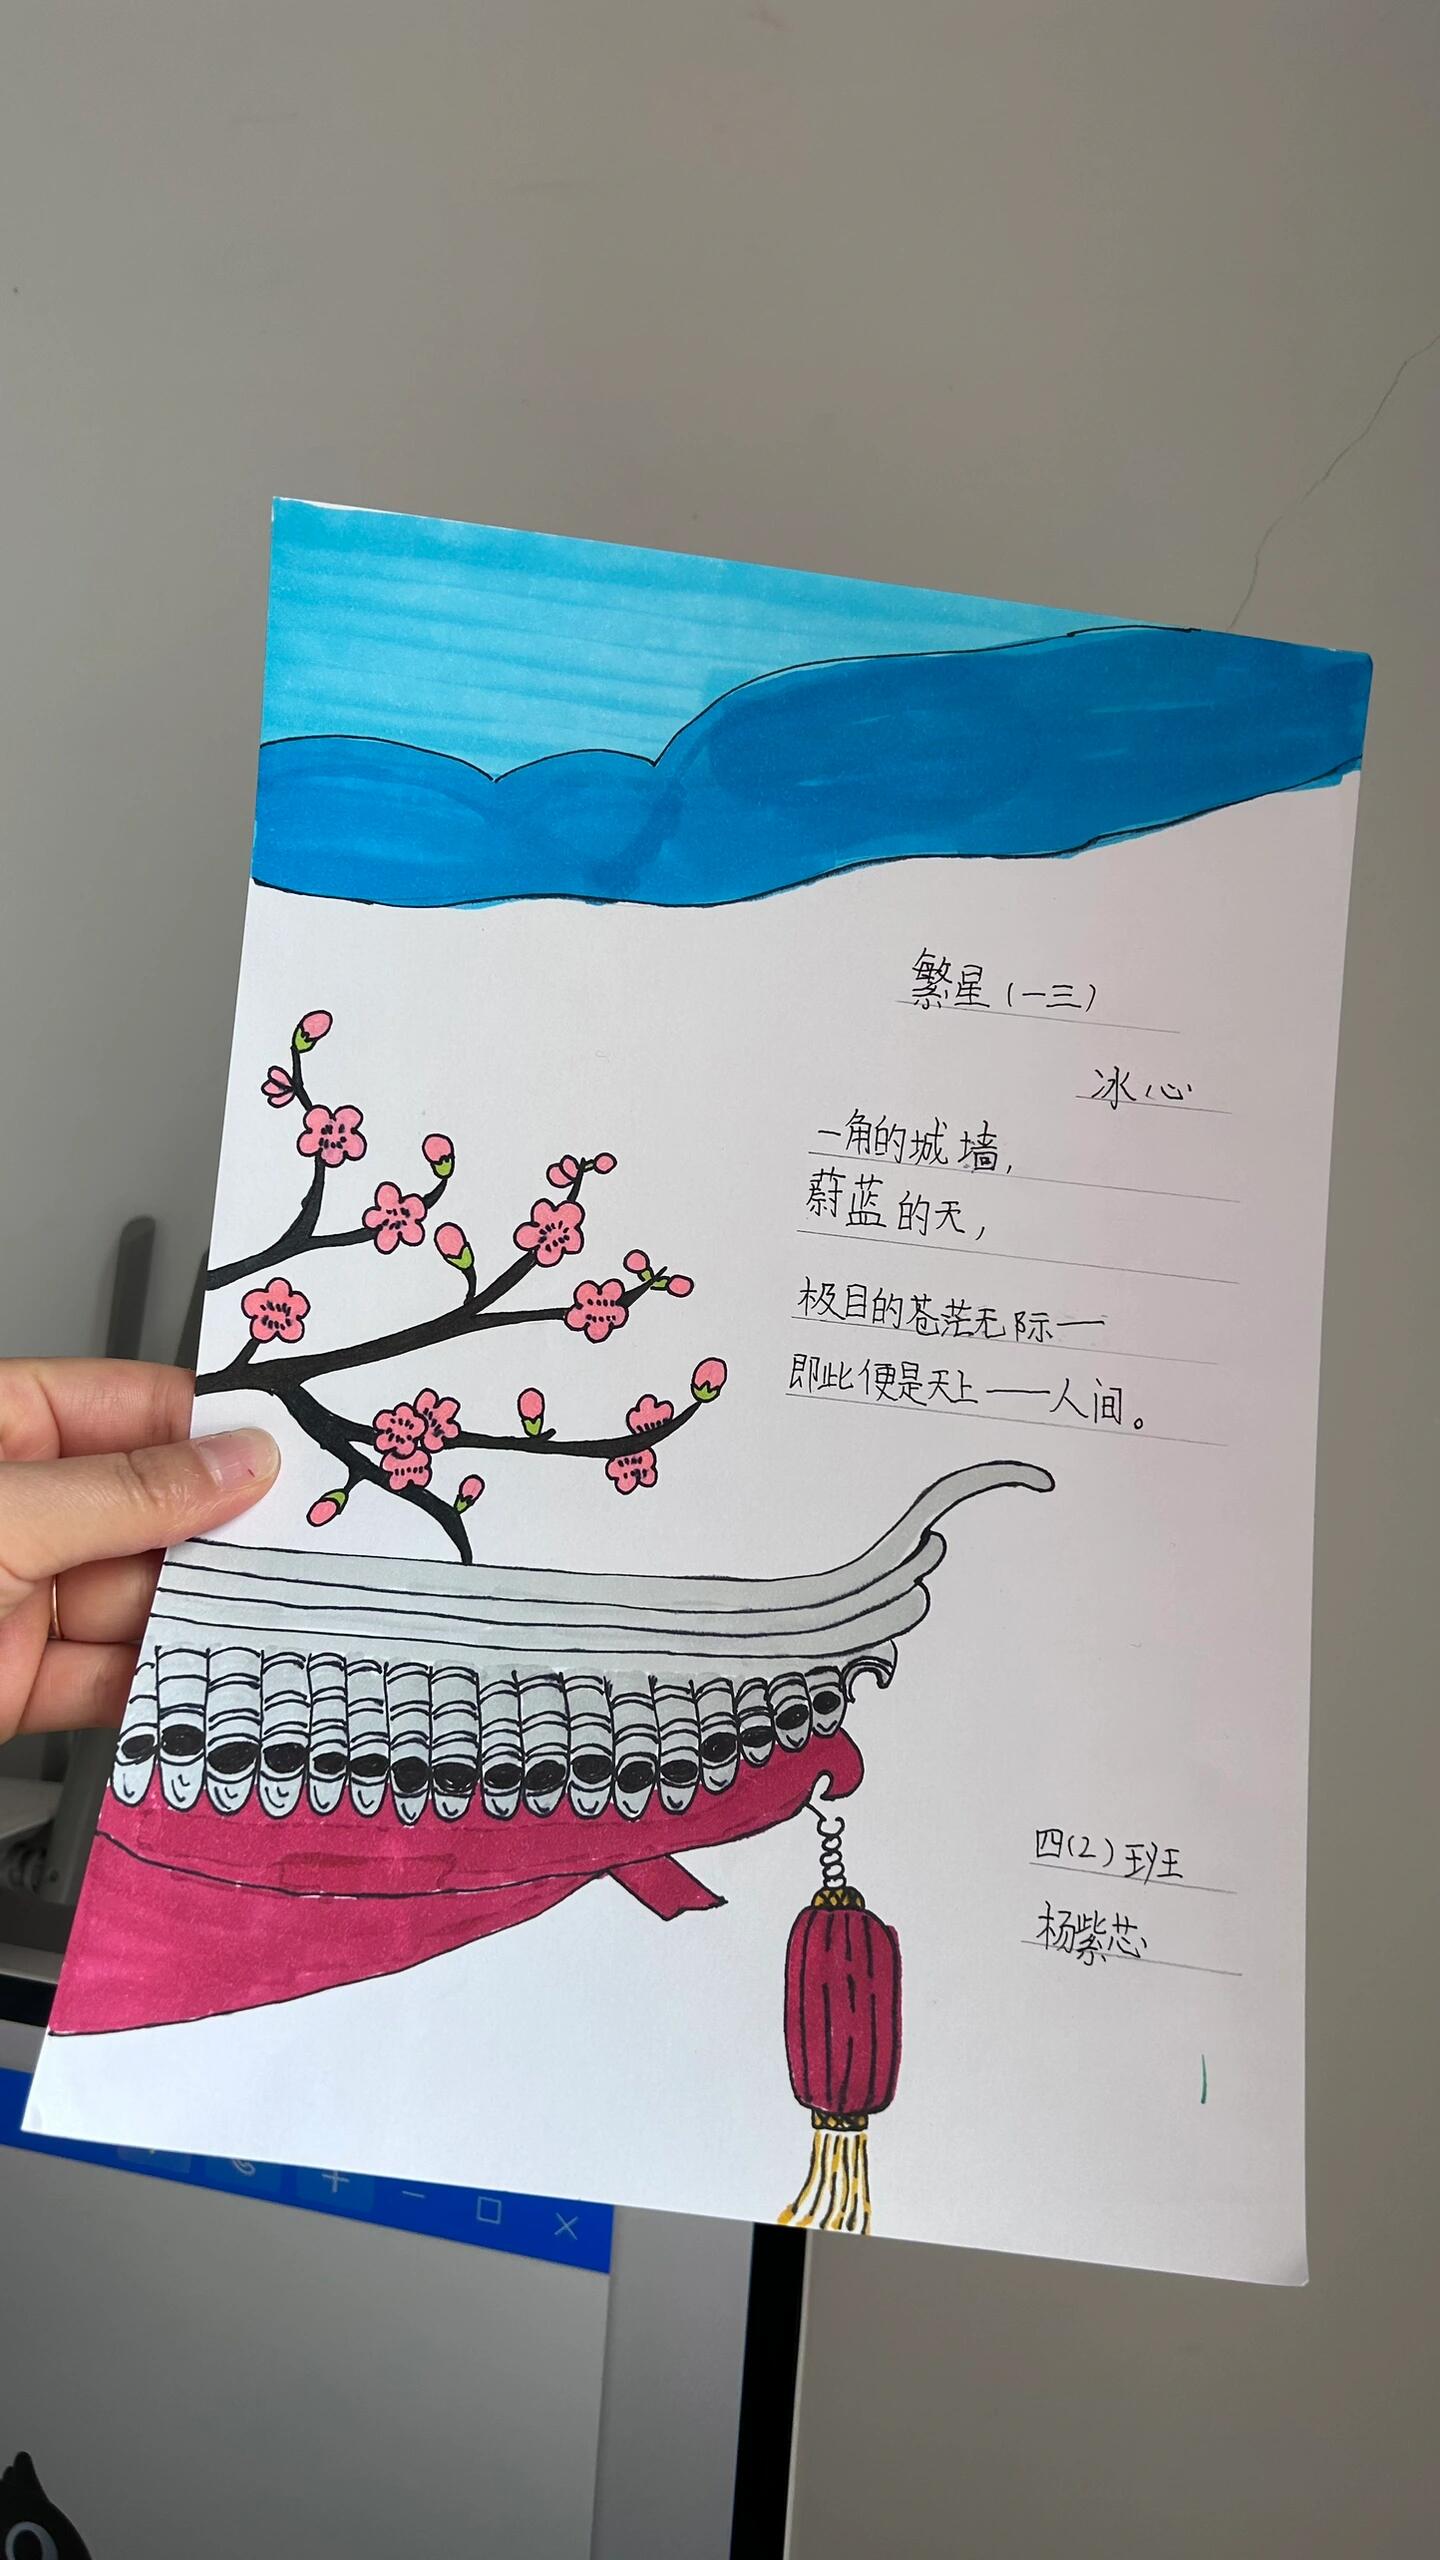 繁星（一三）
冰心
一角的城墙，
蔚蓝的天，
极目的苍茫无际——
即此便是天上——人间。
四（2）班
杨紫芯